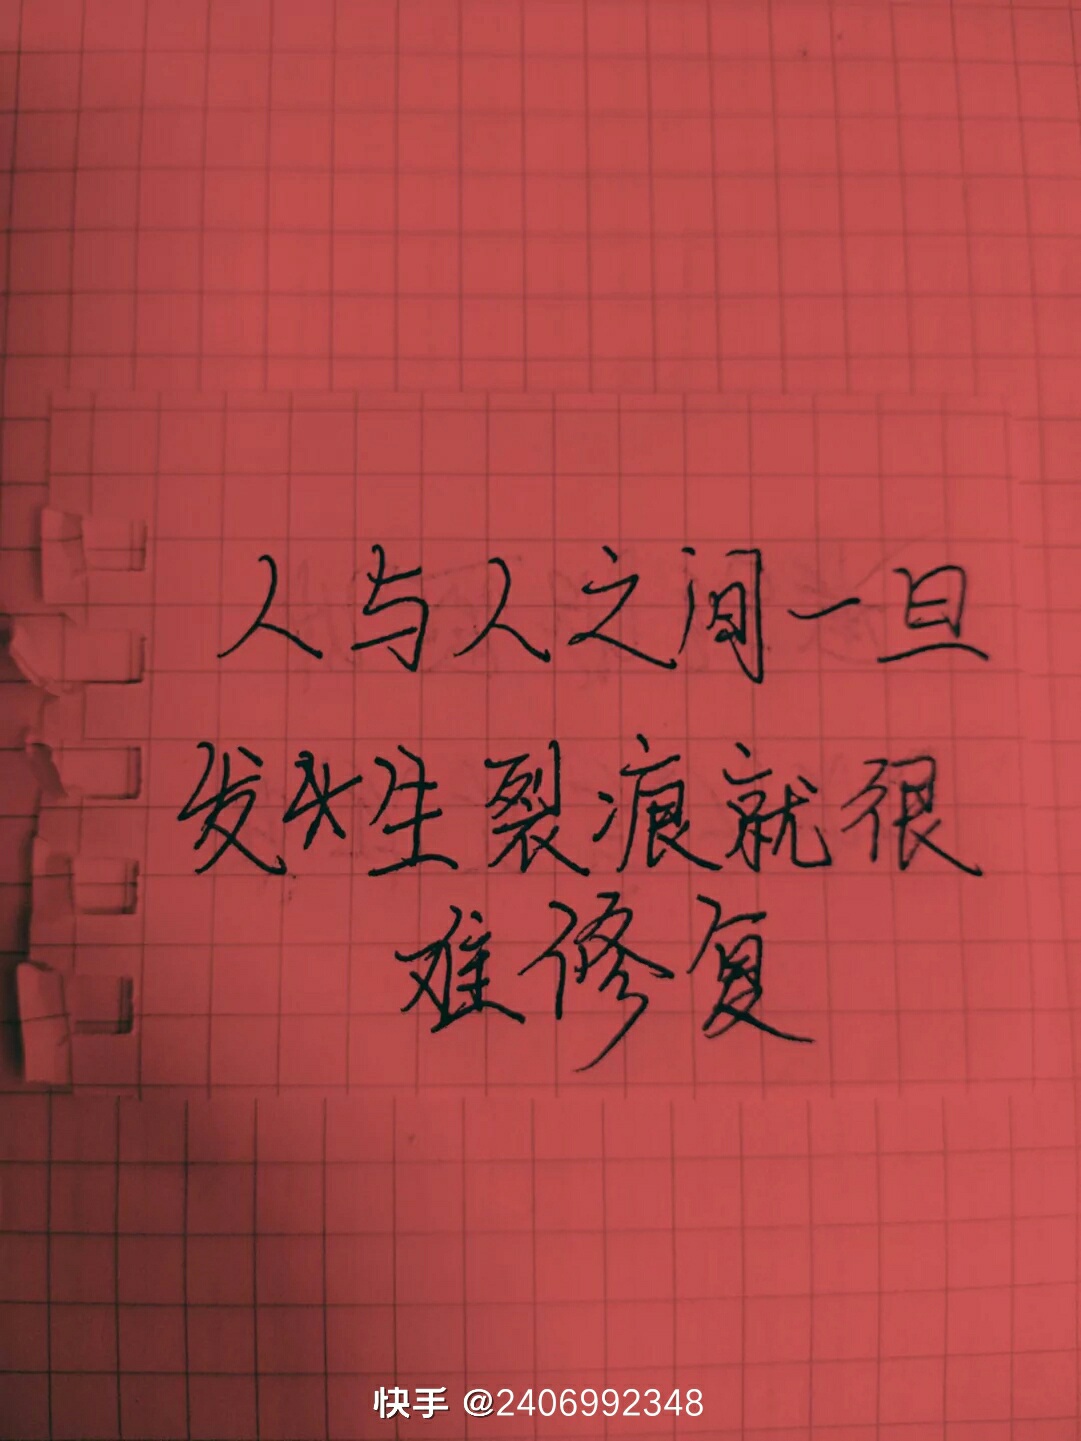 人与人之间一旦
发生裂痕就很
难修复
快手 @2406992348